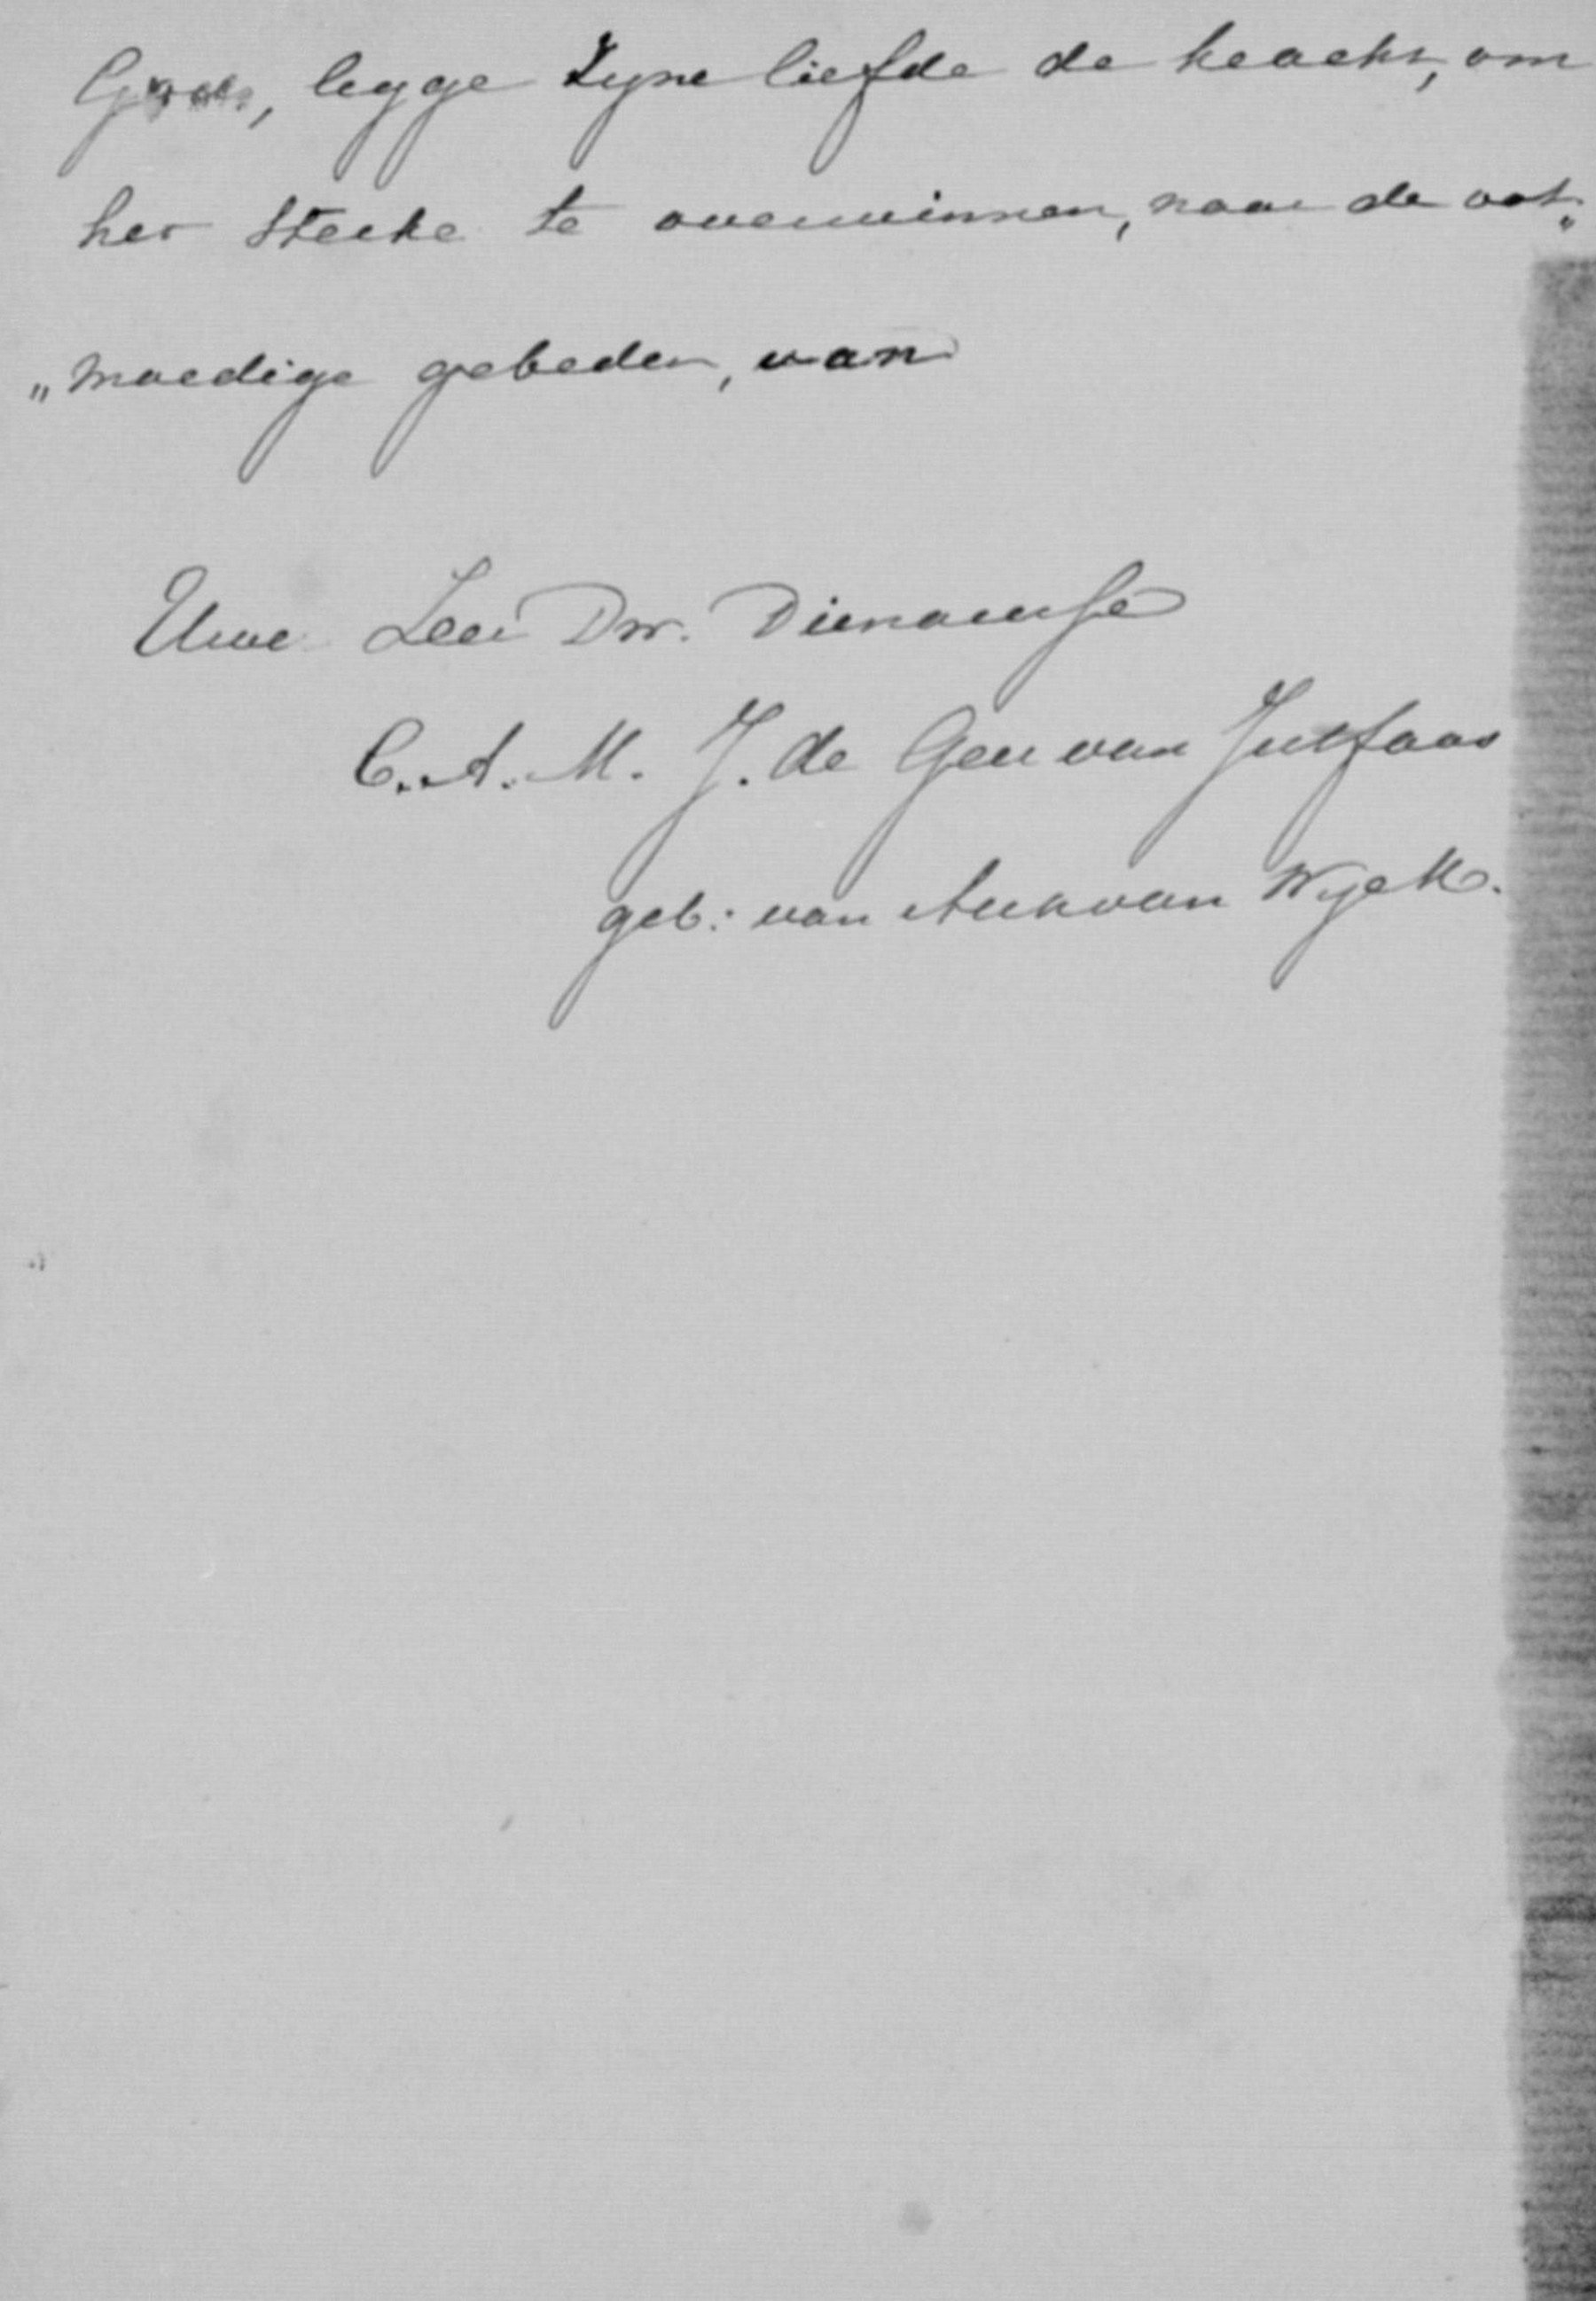 Gods, legge Zyne liefde de kracht, om
het Sterke te overwinnen, naar de oot„
„moedige gebeden, van
Uwe Zeer Dw. Dienaresse
C. A. M. J. de Geer van Jutfaas
geb: van Asch van Wyck.